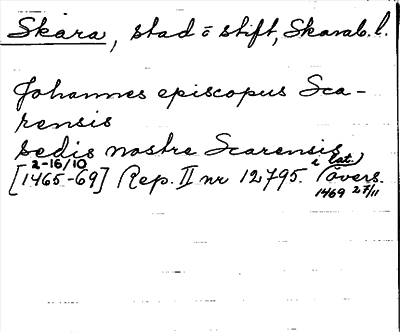 Skara, stad o stift, Skarab. l.
Johannes episcopus Sca-
rensis
sedis nostre Scarensis
2-16/10 i lat.)
[1465-69] Rep. II nr 12795. (övers.
1469 27/11